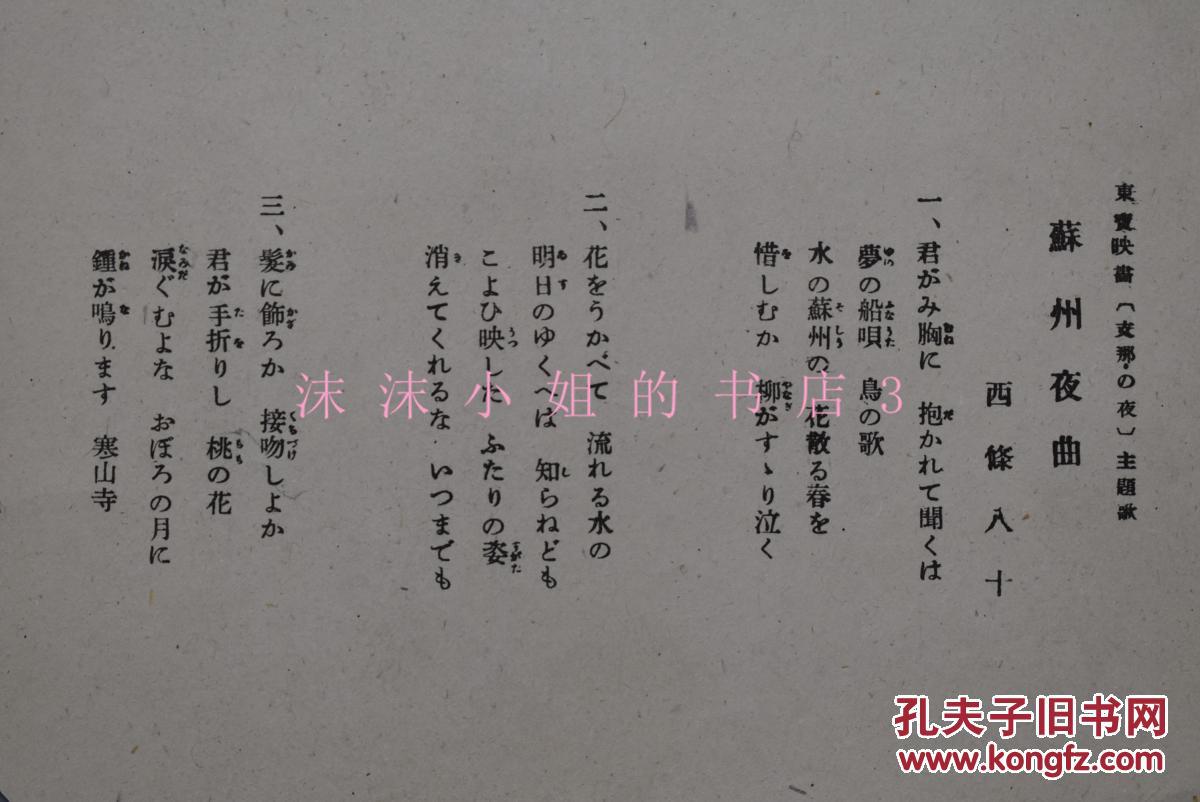 東寶映畫〔支那の夜〕主題歌
蘇州夜曲
西條八十
一、君がみ胸に　抱かれて聞くは
夢の船唄　鳥の歌
水の蘇州の、花散る春を
惜しむか　柳がすゝり泣く
二、花をうかべて　流れる水の
明日のゆくへは　知らねども
こよひ映した　ふたりの姿
消えてくれるな　いつまでも
三、髪に飾ろか　接吻しよか
君が手折りし　桃の花
涙ぐむよな　おぼろの月に
鐘が鳴ります　寒山寺
沫沫小姐的书店3
孔夫子旧书网
www.kongfz.com